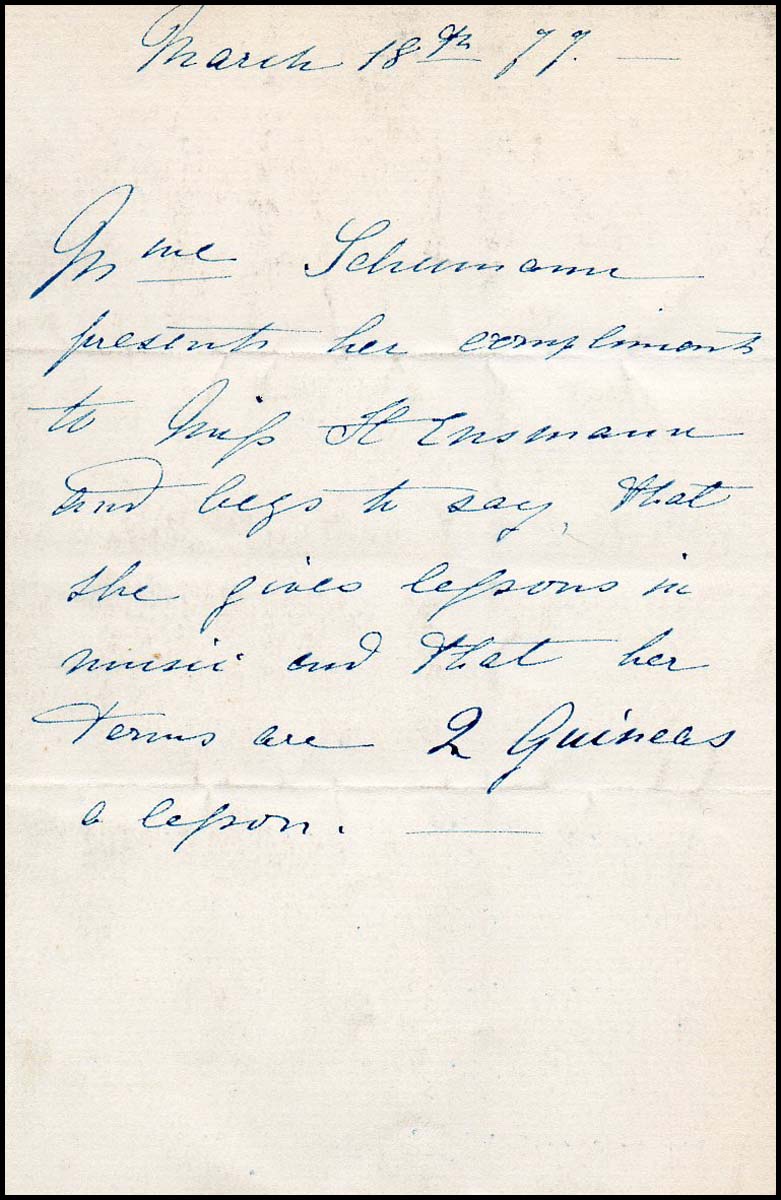 March 18th 77. —
Mme Schumann
presents her compliments
to Miss
and begs to say, that
she gives lessons in
music and that her
terms are 2 Guineas
a lesson. —